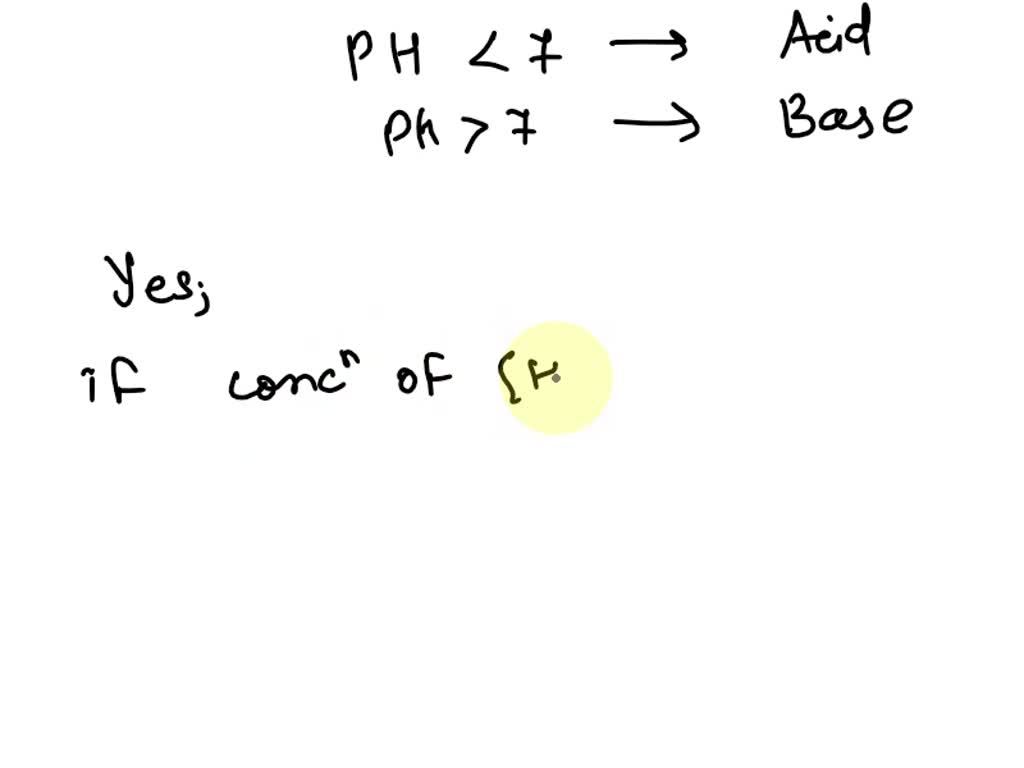 PH < 7 → Acid
Ph > 7 → Base
Yes;
if concⁿ of [H